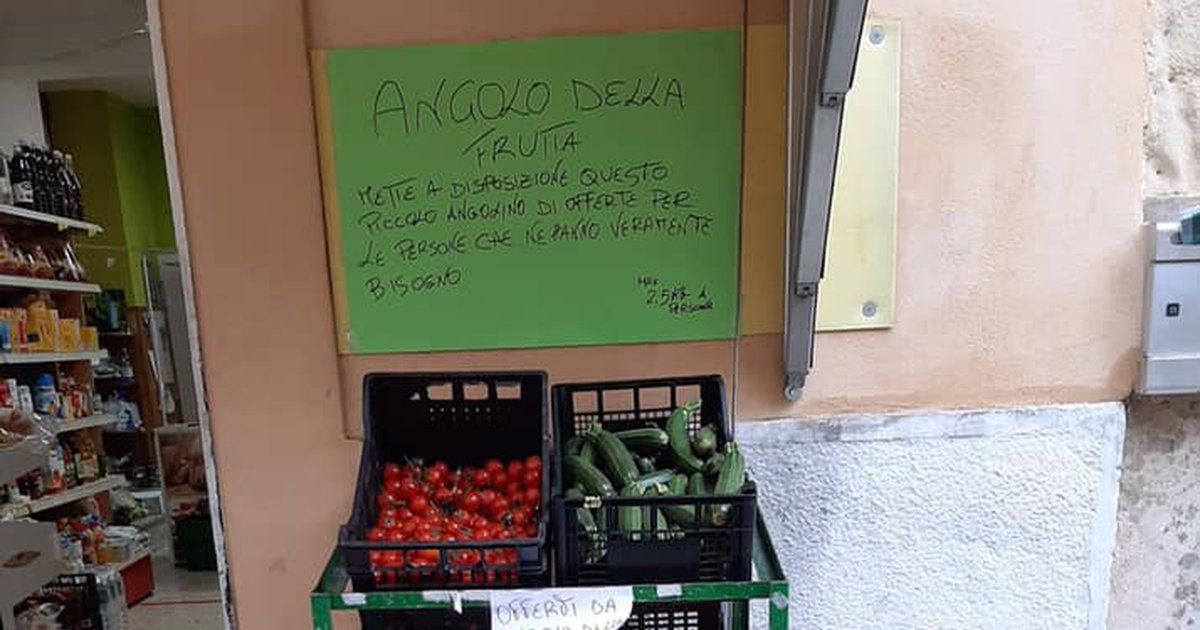 ANGOLO DELLA
FRUTTA
METTE A DISPOSIZIONE QUESTO
PICCOLO ANGOLINO DI OFFERTE PER
LE PERSONE CHE NE HANNO VERAMENTE
BISOGNO
MAX
2.5 KG A
PERSONA
OFFERTI DA